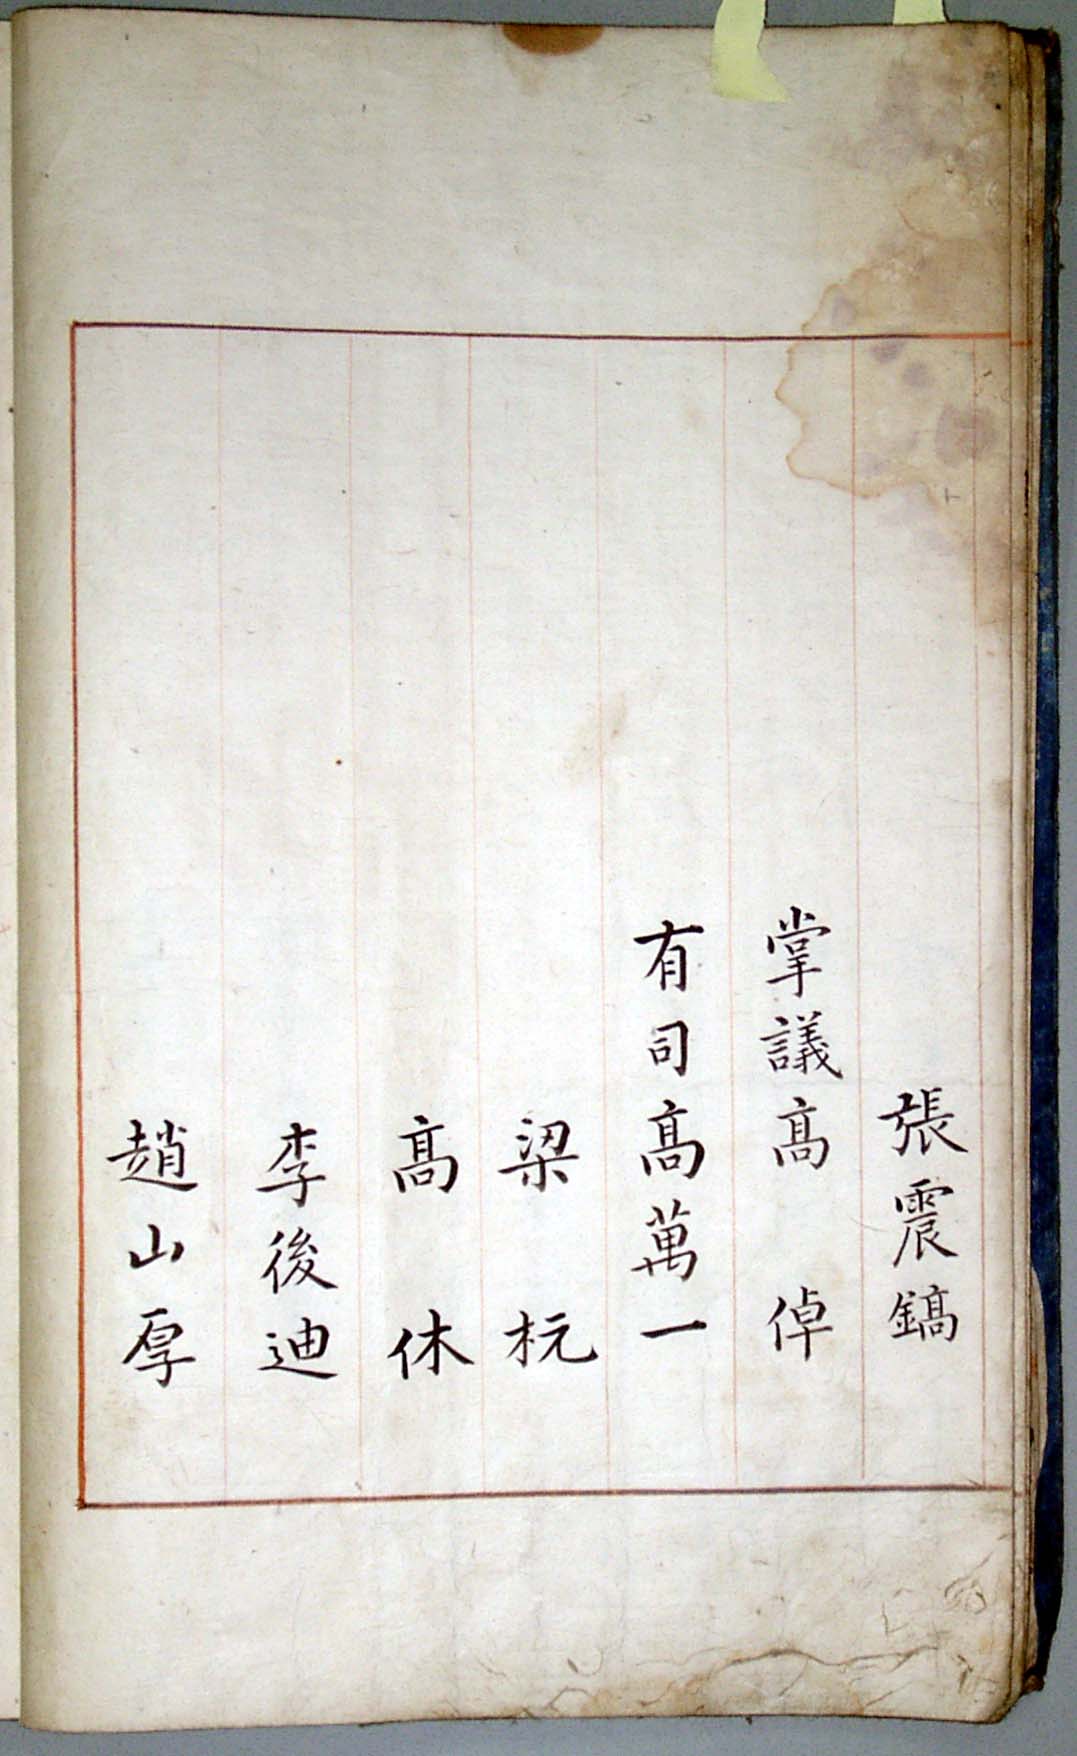 張震鎬
掌議高倬
有司高萬一
梁杬
高休
李後迪
趙山厚